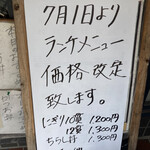 7月1日より
ランチメニュー
価格改定
致します。
にぎり10貫 1200円
12貫 1.300円
ちらし丼 1.300円